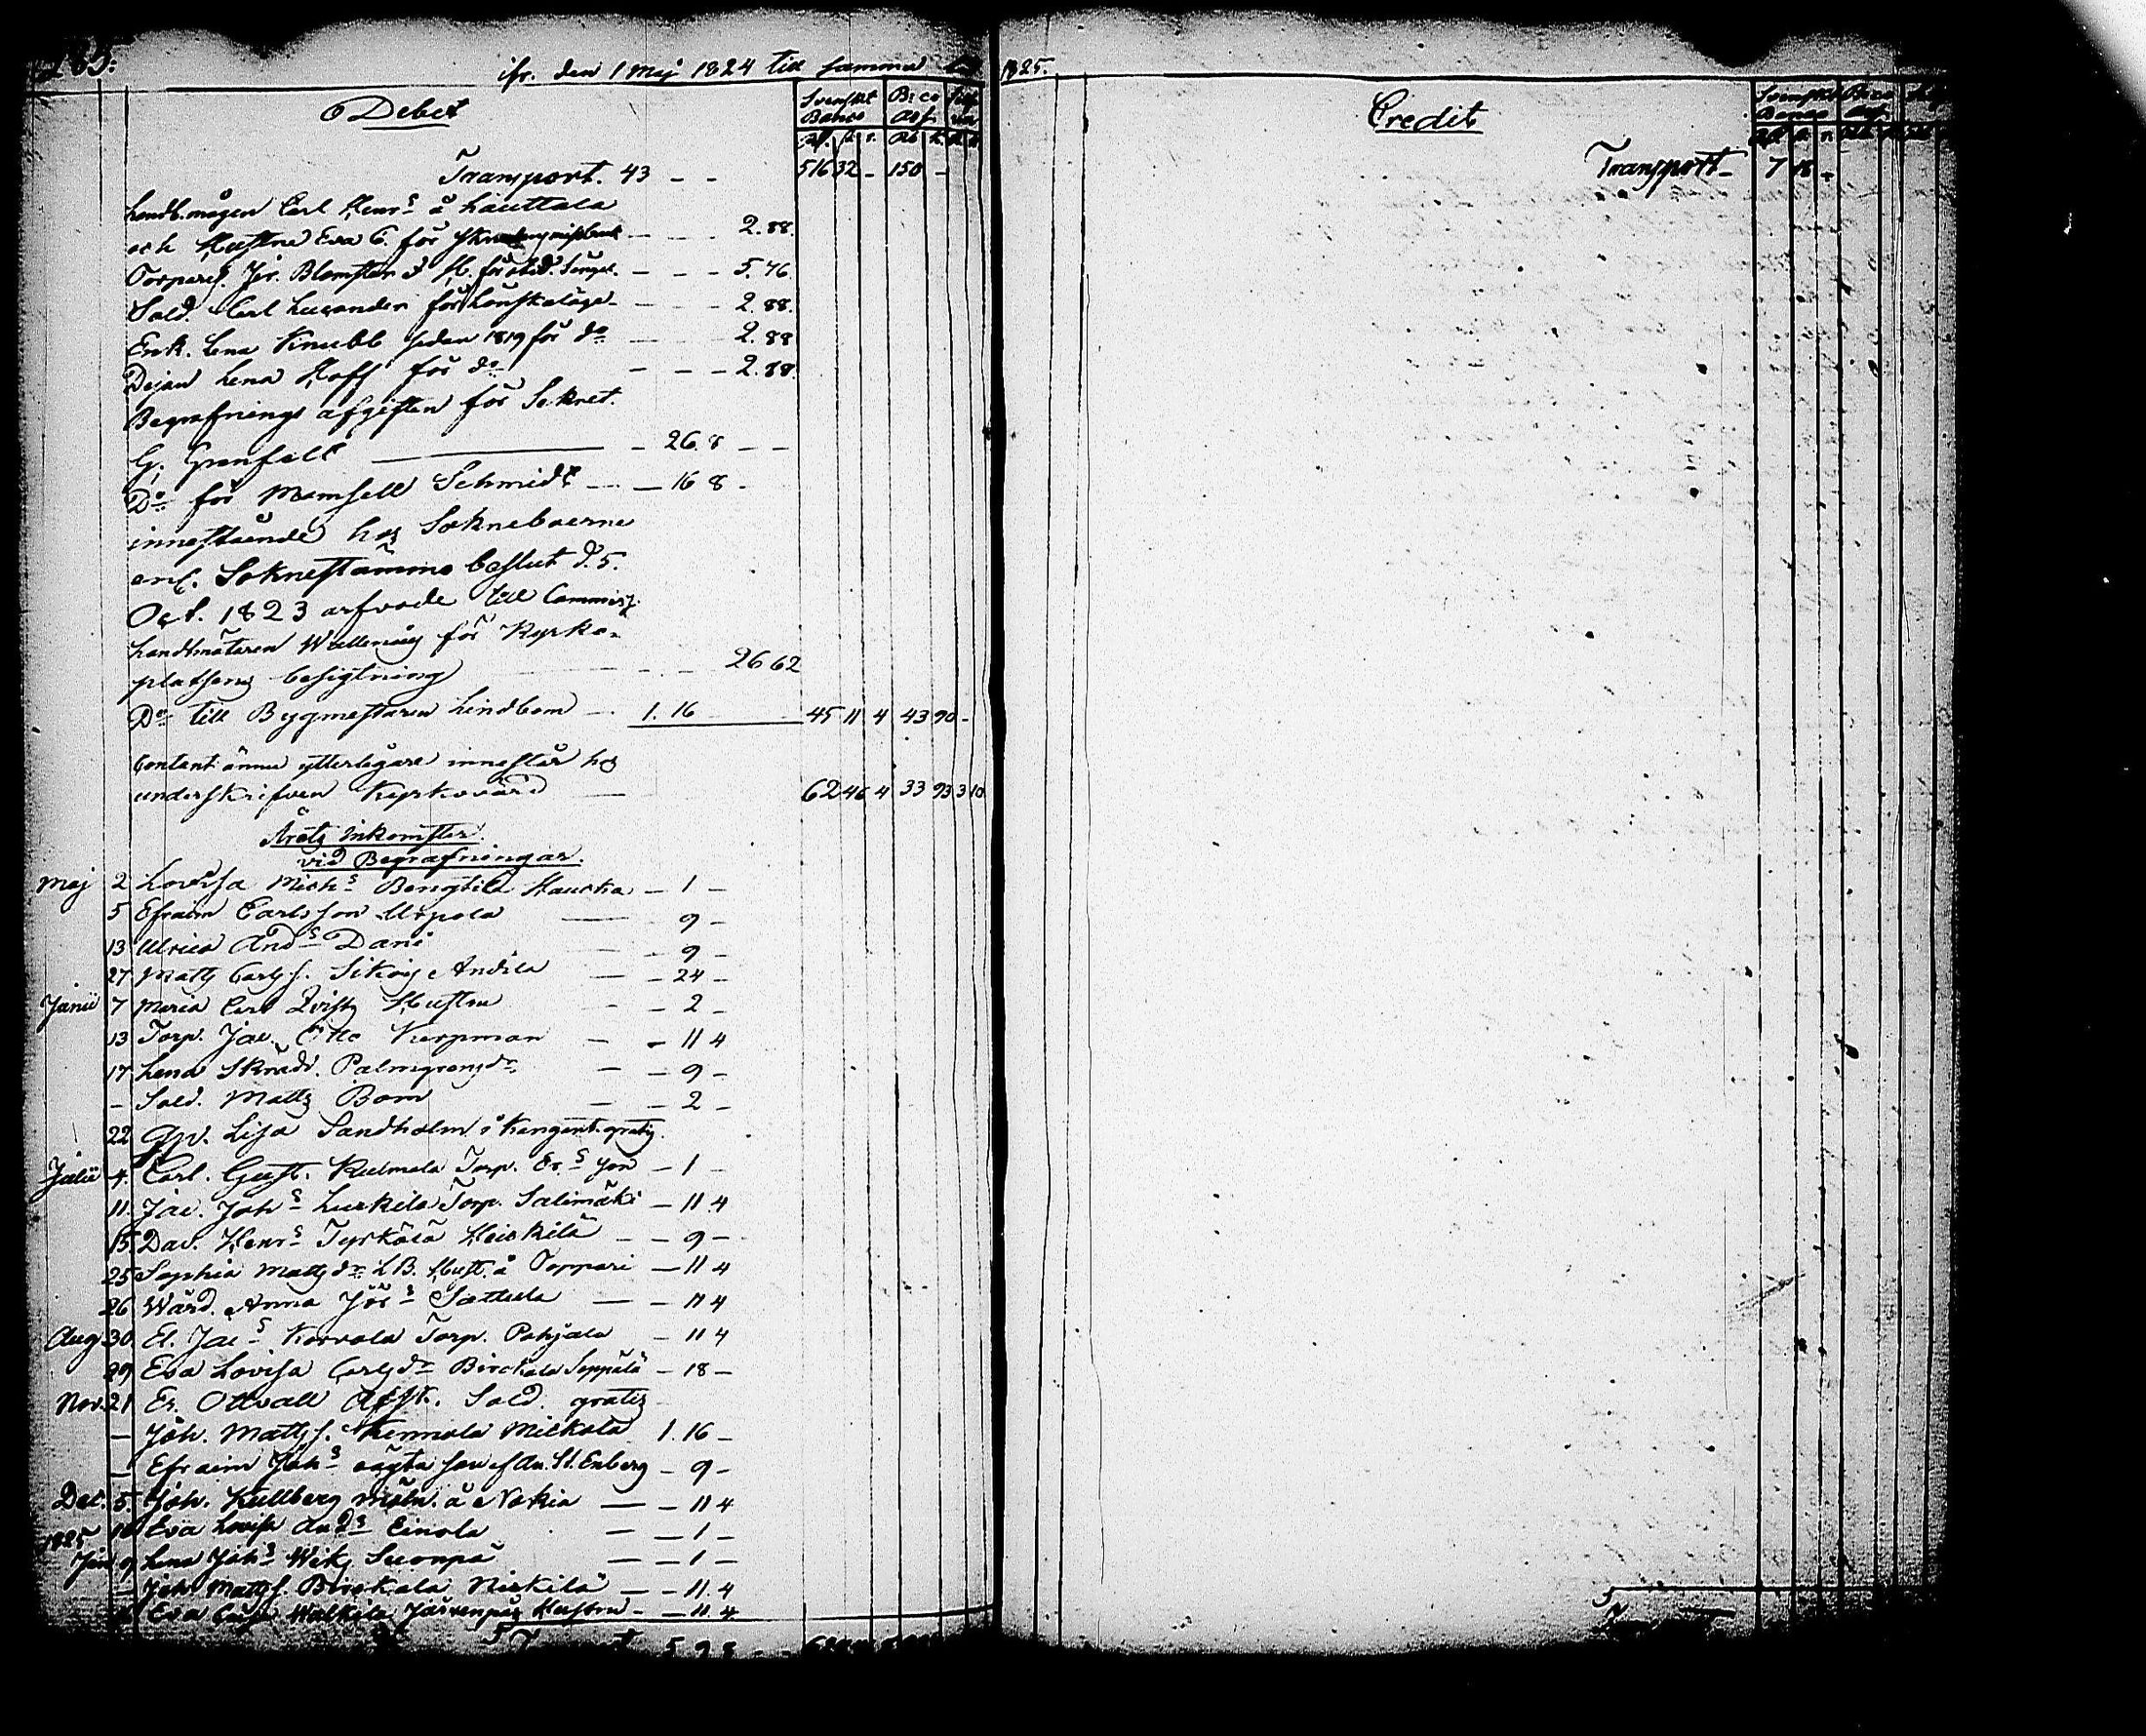 185.
ifr. den 1 Maj 1824 till samma 1825.
Debet
Svenskt Banco
Bico Ass.
Transport. 43 - - 516 32 - 150 -
Landb.mågen Carl Henrs å Lauttala
och Hustru Eva C. för - - - 2.88.
Torpares. Jer. Blomster d. Hl. för - - - 5.76
Sold. Carl Lucander för Lönskaläge - - - 2.88.
Enk. Lena Knubb sedan 1819 för do - - - 2.88
Dejan Lena Hoff för do - - - 2.88.
Begrafnings afgiften för Sekret.
G. Grenfelt - 26.8 - -
Do för Mamsell Schmidt - - 16 8 -
innestående hos Sokneboerne
enl. Soknestämmo beslut d. 5.
Oct. 1823 arfvode till Commiss.
Landtmätaren Wallenius för Kyrko-
platsens besigtning - - - 26 62
Do till Bygmästaren Lindbom - 1. 16 45 11 4 43 90 -
Contant ännu ytterligare innestår hos
underskrifven Kyrkovärd 62 46 4 33 93 3 10
Årets Inkomster
vid Begrafningar.
Maj 2 Lovisa Michs Bengtila Hauska - 1 -
5 Efraim Carlsson Urpola - 9 -
13 Ulrica Ands Dani - 9 -
27 Matts Carlss. Sikojs Andila - 24 -
Junii 7 Maria Carl Qvists Hustru - 2 -
13 Torp. Jac. Otto Korpman - 11 4
17 Lena Skrädd. Palmgrens dr - 9 -
- Sold. Matts Bom - 2 -
22 Gv. Lisa Sandholm i Kangent. gratis.
Julii 4. Carl. Gust. Kulmala Torp. Ers son - 1 -
11. Jac. Johs Luskila Torp. Salimäki - 11 4
15. Dav. Henrs Tyrkölä Heikilä - 9 -
25 Sophia Matts dr LB. Hust. å Toppari - 11 4
26 Wärd. Anna Jörs Sattula - 11 4
Aug 30. El. Jacs Korvola Torp. Pohjala - 11 4
29 Eva Lovisa Carls dr Birckala Seppälä - 18 -
Nov. 21 Er. Ottvall Afsk. Sold. gratis
- Joh. Matts s. Kennola Mickola 1. 16 -
- Efraim Johs oägta son af An. St. Enberg - 9 -
Dec. 5. Joh. Kullberg möln. å Nokia - 11 4
1825 Eva Lovisa Ands Einola - 1 -
Jan 9 Lena Johs Wiks Suonpä - 1 -
- Joh. Matts s. Birckala Niskilä - 11. 4
Eva Caisa Walkila Järvenpäs Hustru - 11 4
Transport 5
Credit
Svenskt Banco
Transport - 7 18 -